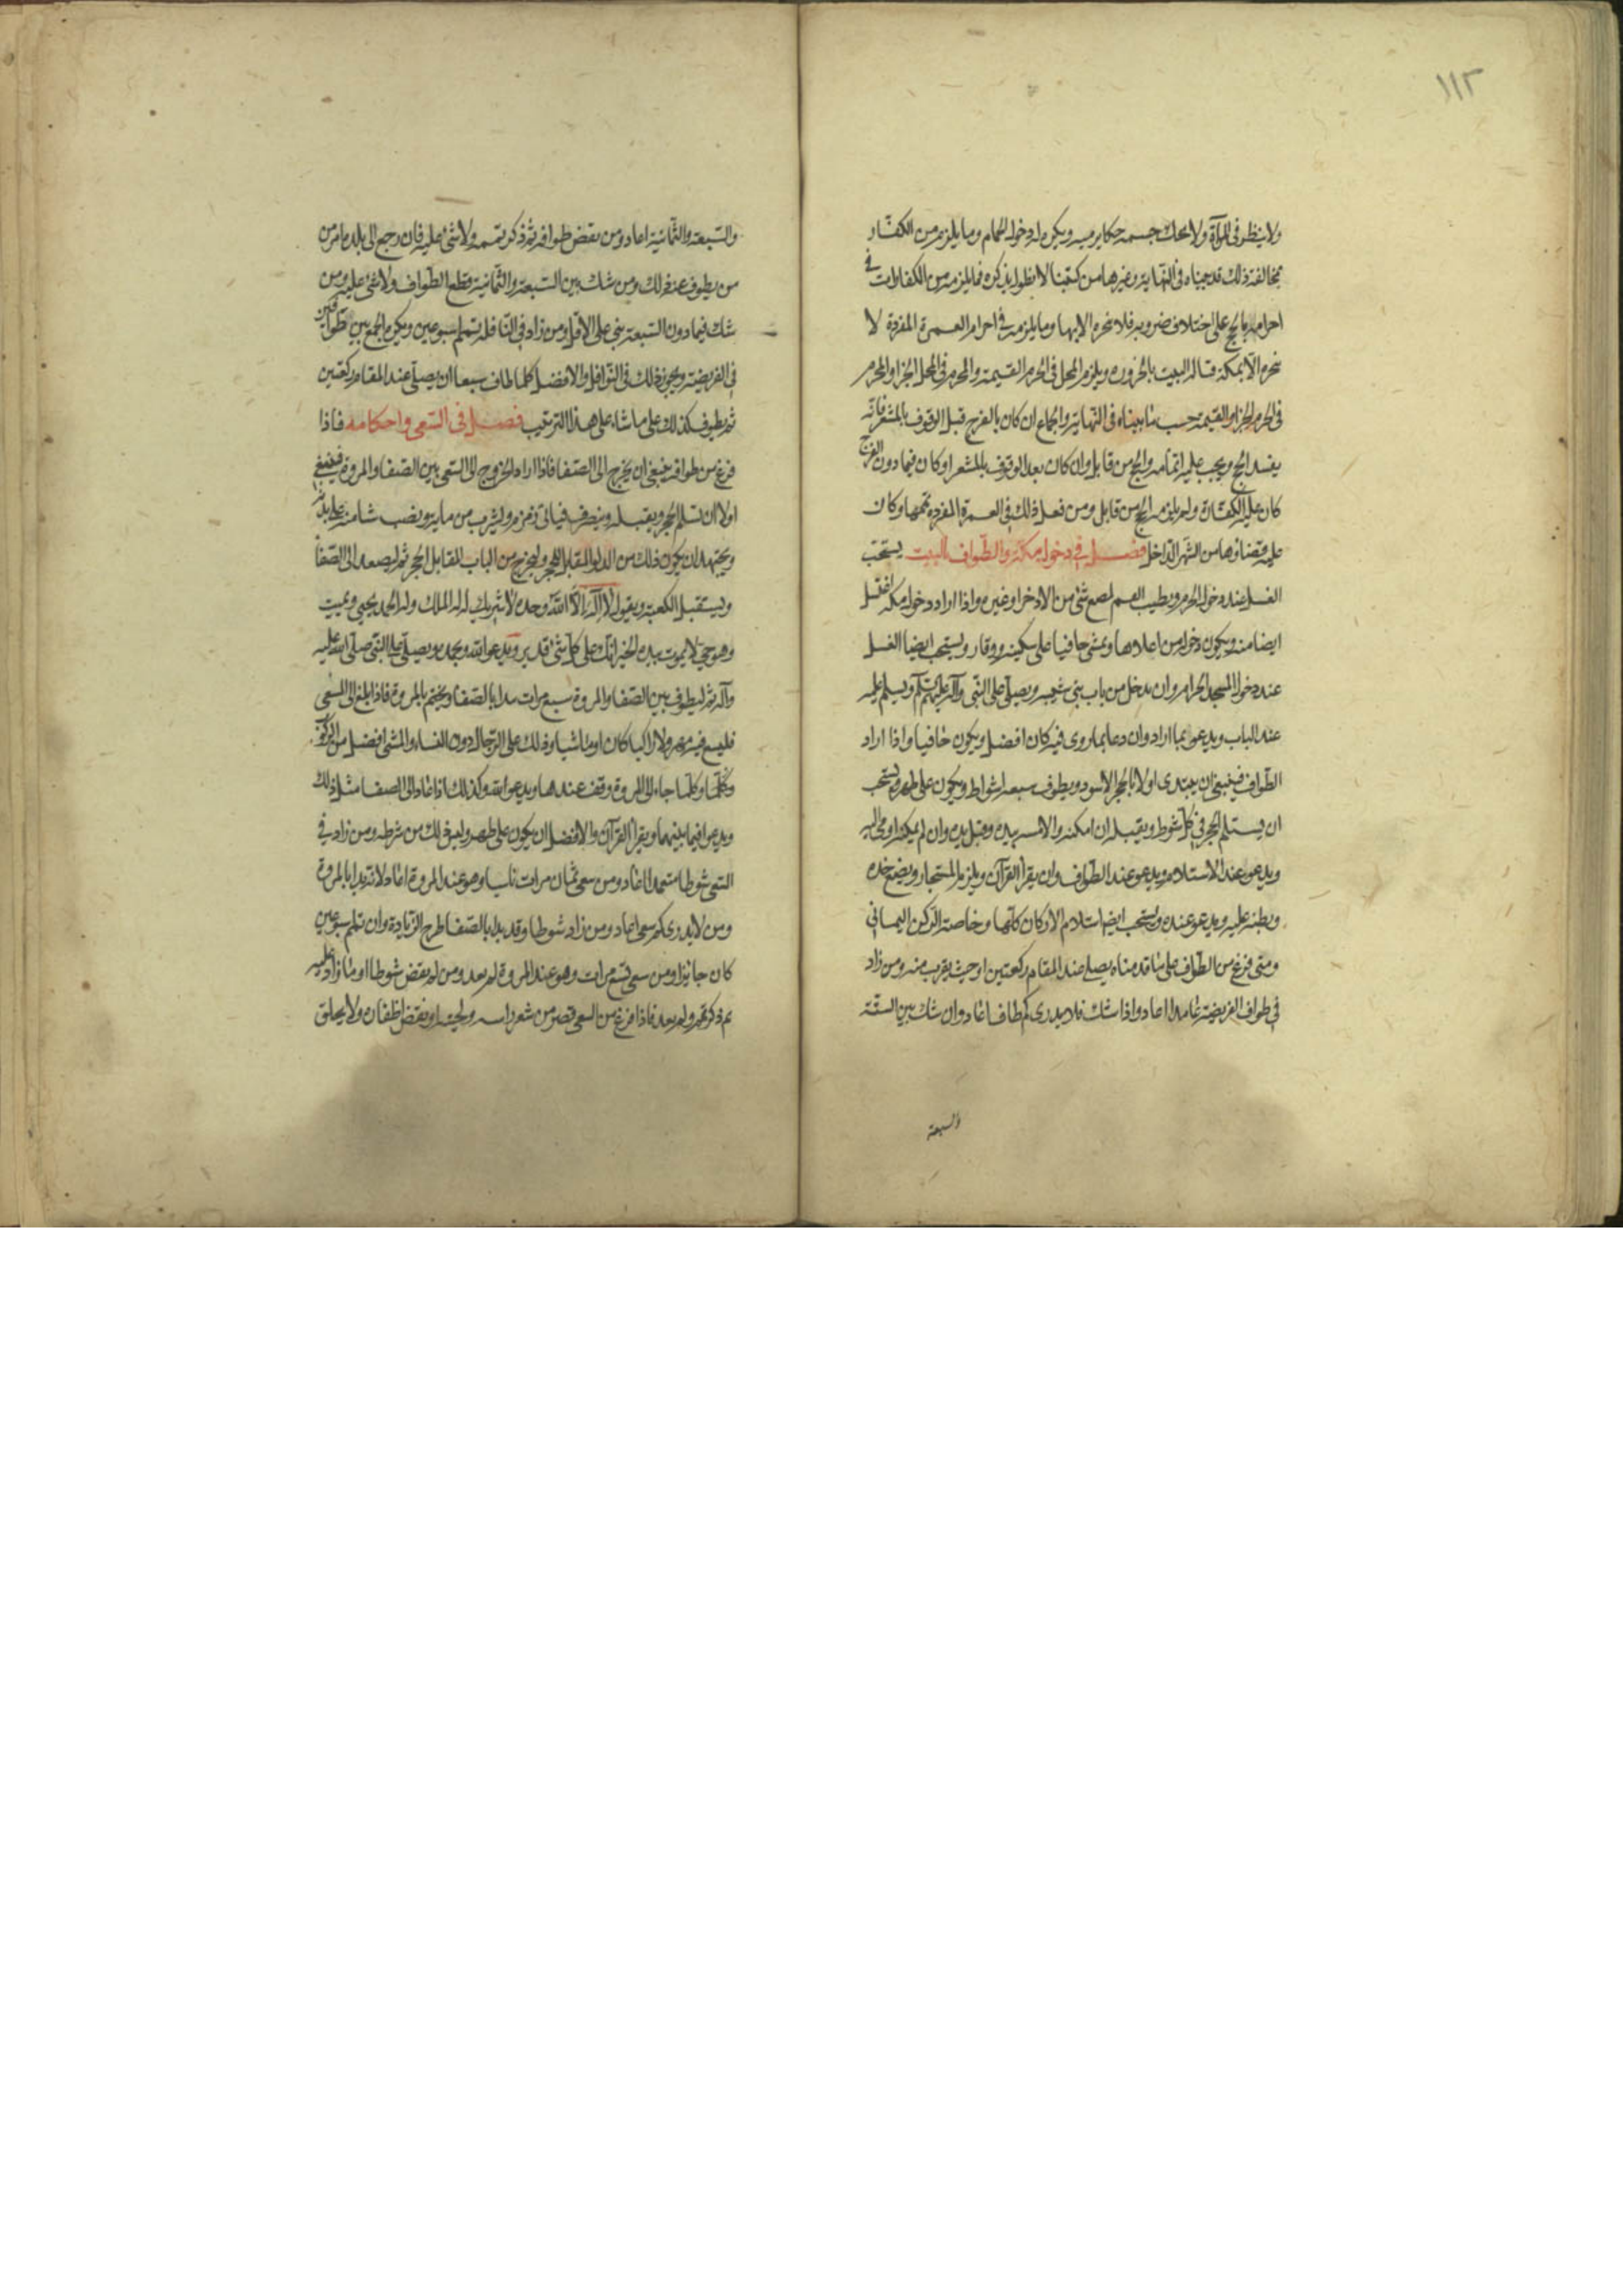 ١١٢
ولا ينظر في المرآة ولا يحك جسمه حكا يدميه ويكره له دخول الحمام وما يلزمه من الكفار
مخالفة ذلك قد بيناه في النهاية وغيرها من كتبنا لا نطول بذكره فما يلزمه من الكفارات في
احرامه بالحج على اختلاف ضروبه فلا ينحره الا بمنى وما يلزمه في احرام العمرة المفردة لا
ينحره الا بمكة قبالة البيت بالحزورة ويلزم المحل في الحرم القيمة والمحرم في المحل الجزاء والمحرم
في الحرم الجزاء والقيمة حسب ما بيناه في النهاية والجماع ان كان بالفرج قبل الوقوف بالمشعر فانه
يفسد الحج ويجب عليه اتمامه والحج من قابل وان كان بعد الوقوف بالمشعر او كان فيما دون الفرج
كان عليه الكفارة ولم يلزمه الحج من قابل ومن فعل ذلك في العمرة المفردة تممها وكان
عليه قضاؤها من الشهر الداخل فصــل في دخول مكة والطواف البيت يستحب
الغسل عند دخول الحرم ويطيب الفم لمضغ شئ من الاذخر او غيره واذا اراد دخول مكة اغتسل
ايضا منه ويكون دخوله من اعلاها ويمشي حافيا على سكينة ووقار ويستحب ايضا الغسل
عند دخول المسجد الحرام وان يدخل من باب بني شيبه ويصلي على النبي وآله عليهم السلام ويسلم عليه
عند الباب ويدعو بما اراد وان دعا بما روى فيه كان افضل ويكون حافيا واذا اراد
الطواف فينبغي ان يبتدى اولا بالحجر الاسود ويطوف سبعة اشواط ويكون على طهر ويستحب
ان يستلم الحجر في كل شوط ويقبله ان امكنه والا لمسه بيده وقبل يده وان لم يمكنه اومى اليه
ويدعو عند الاستلام ويدعو عند الطواف وان يقرأ القرآن ويلزم المستجار ويضع خده
وبطنه عليه ويدعو عنده ويستحب ايضا استلام الاركان كلها وخاصة الركن اليماني
ومتى فرغ من الطواف على ما قدمناه يصلي عند المقام ركعتين او حيث يقرب منه ومن زاد
في طواف الفريضة عامدا اعاد واذا شك فلا يدري كم طاف اعاد وان شك بين الستة
والسبعة
والسبعة والثمانية اعاد ومن نقض طوافه ثم ذكر تممه ولا شئ عليه فان رجع الى بلده امر من
من يطوف عنه ذلك ومن شك بين السبعة والثمانية قطع الطواف ولا شئ عليه ومن
شك فيما دون السبعة بنى على الاقل ومن زاد في النافلة تمم اسبوعين ويكره الجمع بين طوافين
في الفريضة ويجوز ذلك في النوافل والافضل كلما طاف سبعا ان يصلي عند المقام ركعتين
ثم يطوف كذلك على ما شاء على هذا الترتيب فصــل في السعي واحكامه فاذا
فرغ من طوافه ينبغي ان يخرج الى الصفا فاذا اراد الخروج الى السعي بين الصفا والمروة فينبغي
اولا ان يستلم الحجر ويقبله وينصرف فياتى زمزم وليشرب من مايه ويصب شئا منه على بدنه
ويجتهد ان يكون ذلك من الدلو المقابل للحجر وليخرج من الباب المقابل الحجر ثم ليصعد الى الصفا
ويستقبل الكعبة ويقول لا اله الا الله وحده لا شريك له له الملك وله الحمد يحيي ويميت
وهو حي لا يموت بيده الخير انك على كل شئ قدير ويدعو الله ويحمده ويصلي على النبي صلى الله عليه
وآله ثم ليطوف بين الصفا والمروة سبع مرات يبدا بالصفا ويختم بالمروة فاذا بلغ الى المسعى
فليسع فيه مهرولا راكبا كان او ماشيا وذلك على الرجال دون النساء والمشى افضل من الركوب
وكلما وكلما جاء الى المروة وقف عندها ويدعو الله وكذلك اذا عاد الى الصفا مثل ذلك
ويدعو فيما بينهما ويقرأ القرآن والافضل ان يكون على طهر وليس ذلك من شرطه ومن زاد في
السعي شوطا متعمدا اعاد ومن سعى ثمان مرات ناسيا وهو عند المروة اعاد لانه بدا بالمروة
ومن لا يدرى كم سعى اعاد ومن زاد شوطا وقد بدا بالصفا طرح الزيادة وان تمم سبوعين
كان جايزا ومن سعى تسع مرات وهو عند المروة لم يعد ومن لم نقض شوطا او ما زاد عليه
ثم ذكر تمم ولم يعد فاذا فرغ من السعي قصر من شعر راسه ولحيته او نقض اظفاره ولا يحلق